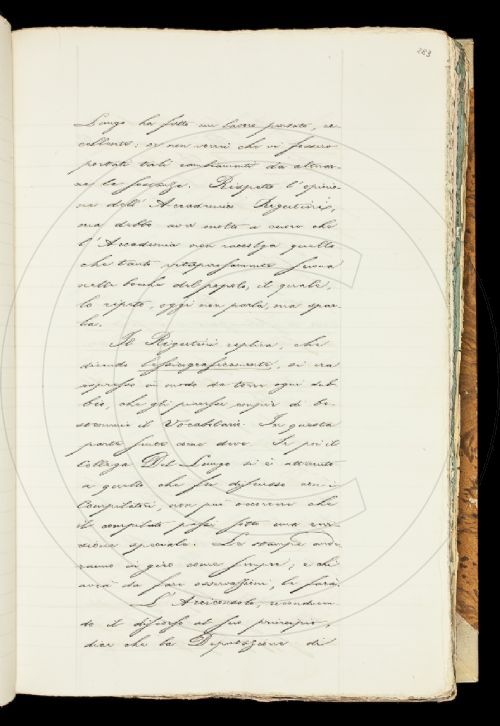 283
Lungo ha fatto un lavoro portato, ec-
cellente: or non vorrei che vi fossero
portati tali cambiamenti da alterar-
ne la sostanza. Rispetto l'opinio-
ne dell' Accademico Rigutini,
ma debbo aver molto a cuore che
l' Accademia non raccolga quello
che tanto spropositamente suona
nella bocca del popolo, il quale,
lo ripeto, oggi non parla, ma spar-
la.
Il Rigutini replica, che
dicendo lessicograficamente, si era
espresso in modo da torre ogni dub-
bio, che gli piacesse empir di be-
stemmie il Vocabolario. In questa
parte sente come deve. Se poi il
Collega Del Lungo si è attenuto
a quello che fu discusso con i
Compilatori, non può occorrere che
il compilato passi sotto una revi-
sione speciale. Le stampe and-
ranno in giro come sempre, e chi
avrà da fare osservazioni, le farà.
L' Arciconsolo, riconducen-
do il discorso al suo principio,
dice che la Deputazione di